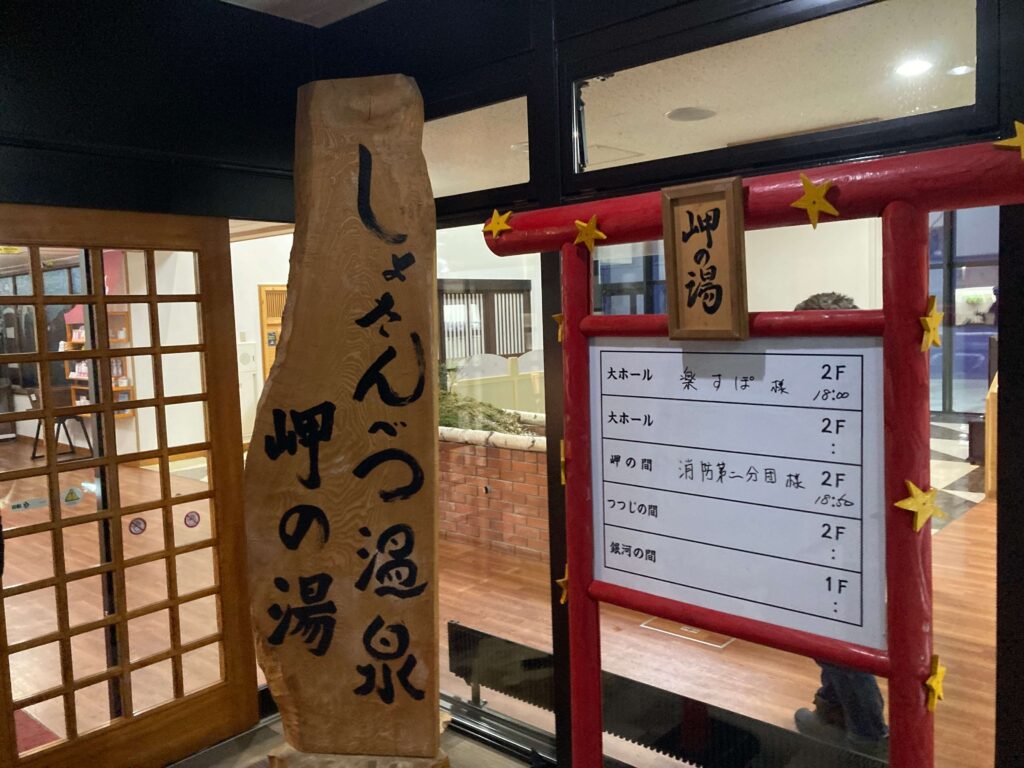 しょさんべつ温泉
岬の湯
岬の湯
大ホール 楽すぽ様 2F
18:00
大ホール 2F
:
岬の間 消防第二分団様 2F
18:50
つつじの間 2F
:
銀河の間 1F
: